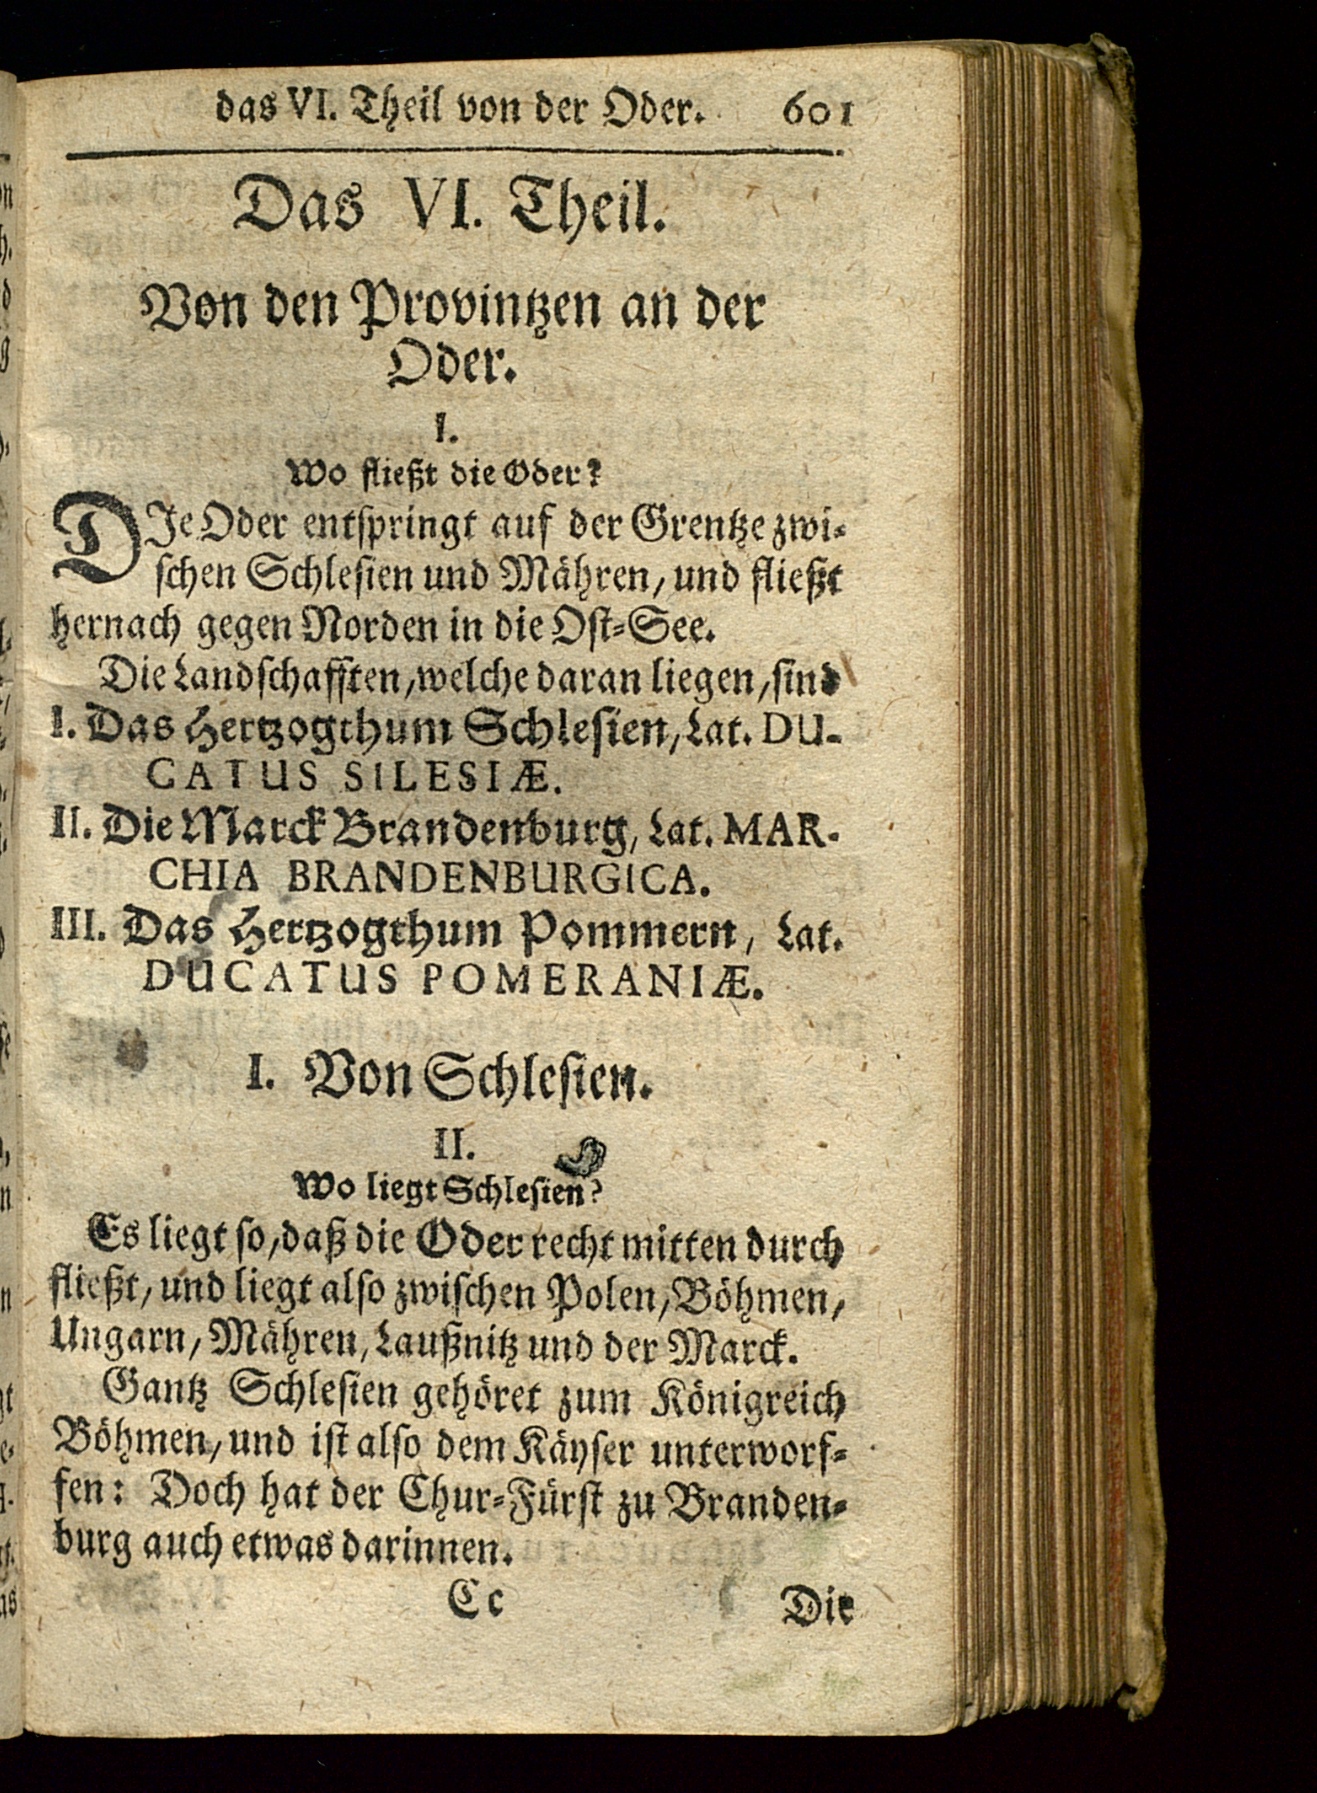 das VI. Theil von der Oder. 601
Das VI. Theil.
Von den Provintzen an der
Oder.
I.
Wo fließt die Oder?
DIe Oder entspringt auf der Grentze zwi-
schen Schlesien und Mähren, und fließt
hernach gegen Norden in die Ost-See.
Die Landschafften, welche daran liegen, sind
I. Das Hertzogthum Schlesien, Lat. DU-
CATUS SILESIÆ.
II. Die Marck Brandenburg, Lat. MAR-
CHIA BRANDENBURGICA.
III. Das Hertzogthum Pommern, Lat.
DUCATUS POMERANIÆ.
I. Von Schlesien.
II.
Wo liegt Schlesien?
Es liegt so, daß die Oder recht mitten durch
fließt, und liegt also zwischen Polen, Böhmen,
Ungarn, Mähren, Laußnitz und der Marck.
Gantz Schlesien gehöret zum Königreich
Böhmen, und ist also dem Käyser unterworf-
fen: Doch hat der Chur-Fürst zu Branden-
burg auch etwas darinnen.
Cc Die